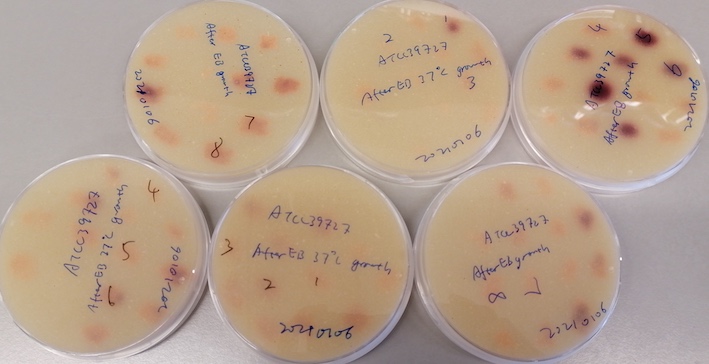 ATCC39727
After EB
growth
20210106
7
8
1
2
ATCC39727
After EB 37°C growth
3
20210106
4
5
6
ATCC39727
After EB growth
4
ATCC39727
After EB 37°C growth
5
6
20210106
ATCC39727
3
After EB 37°C growth
2
1
20210106
ATCC39727
After EB growth
8
7